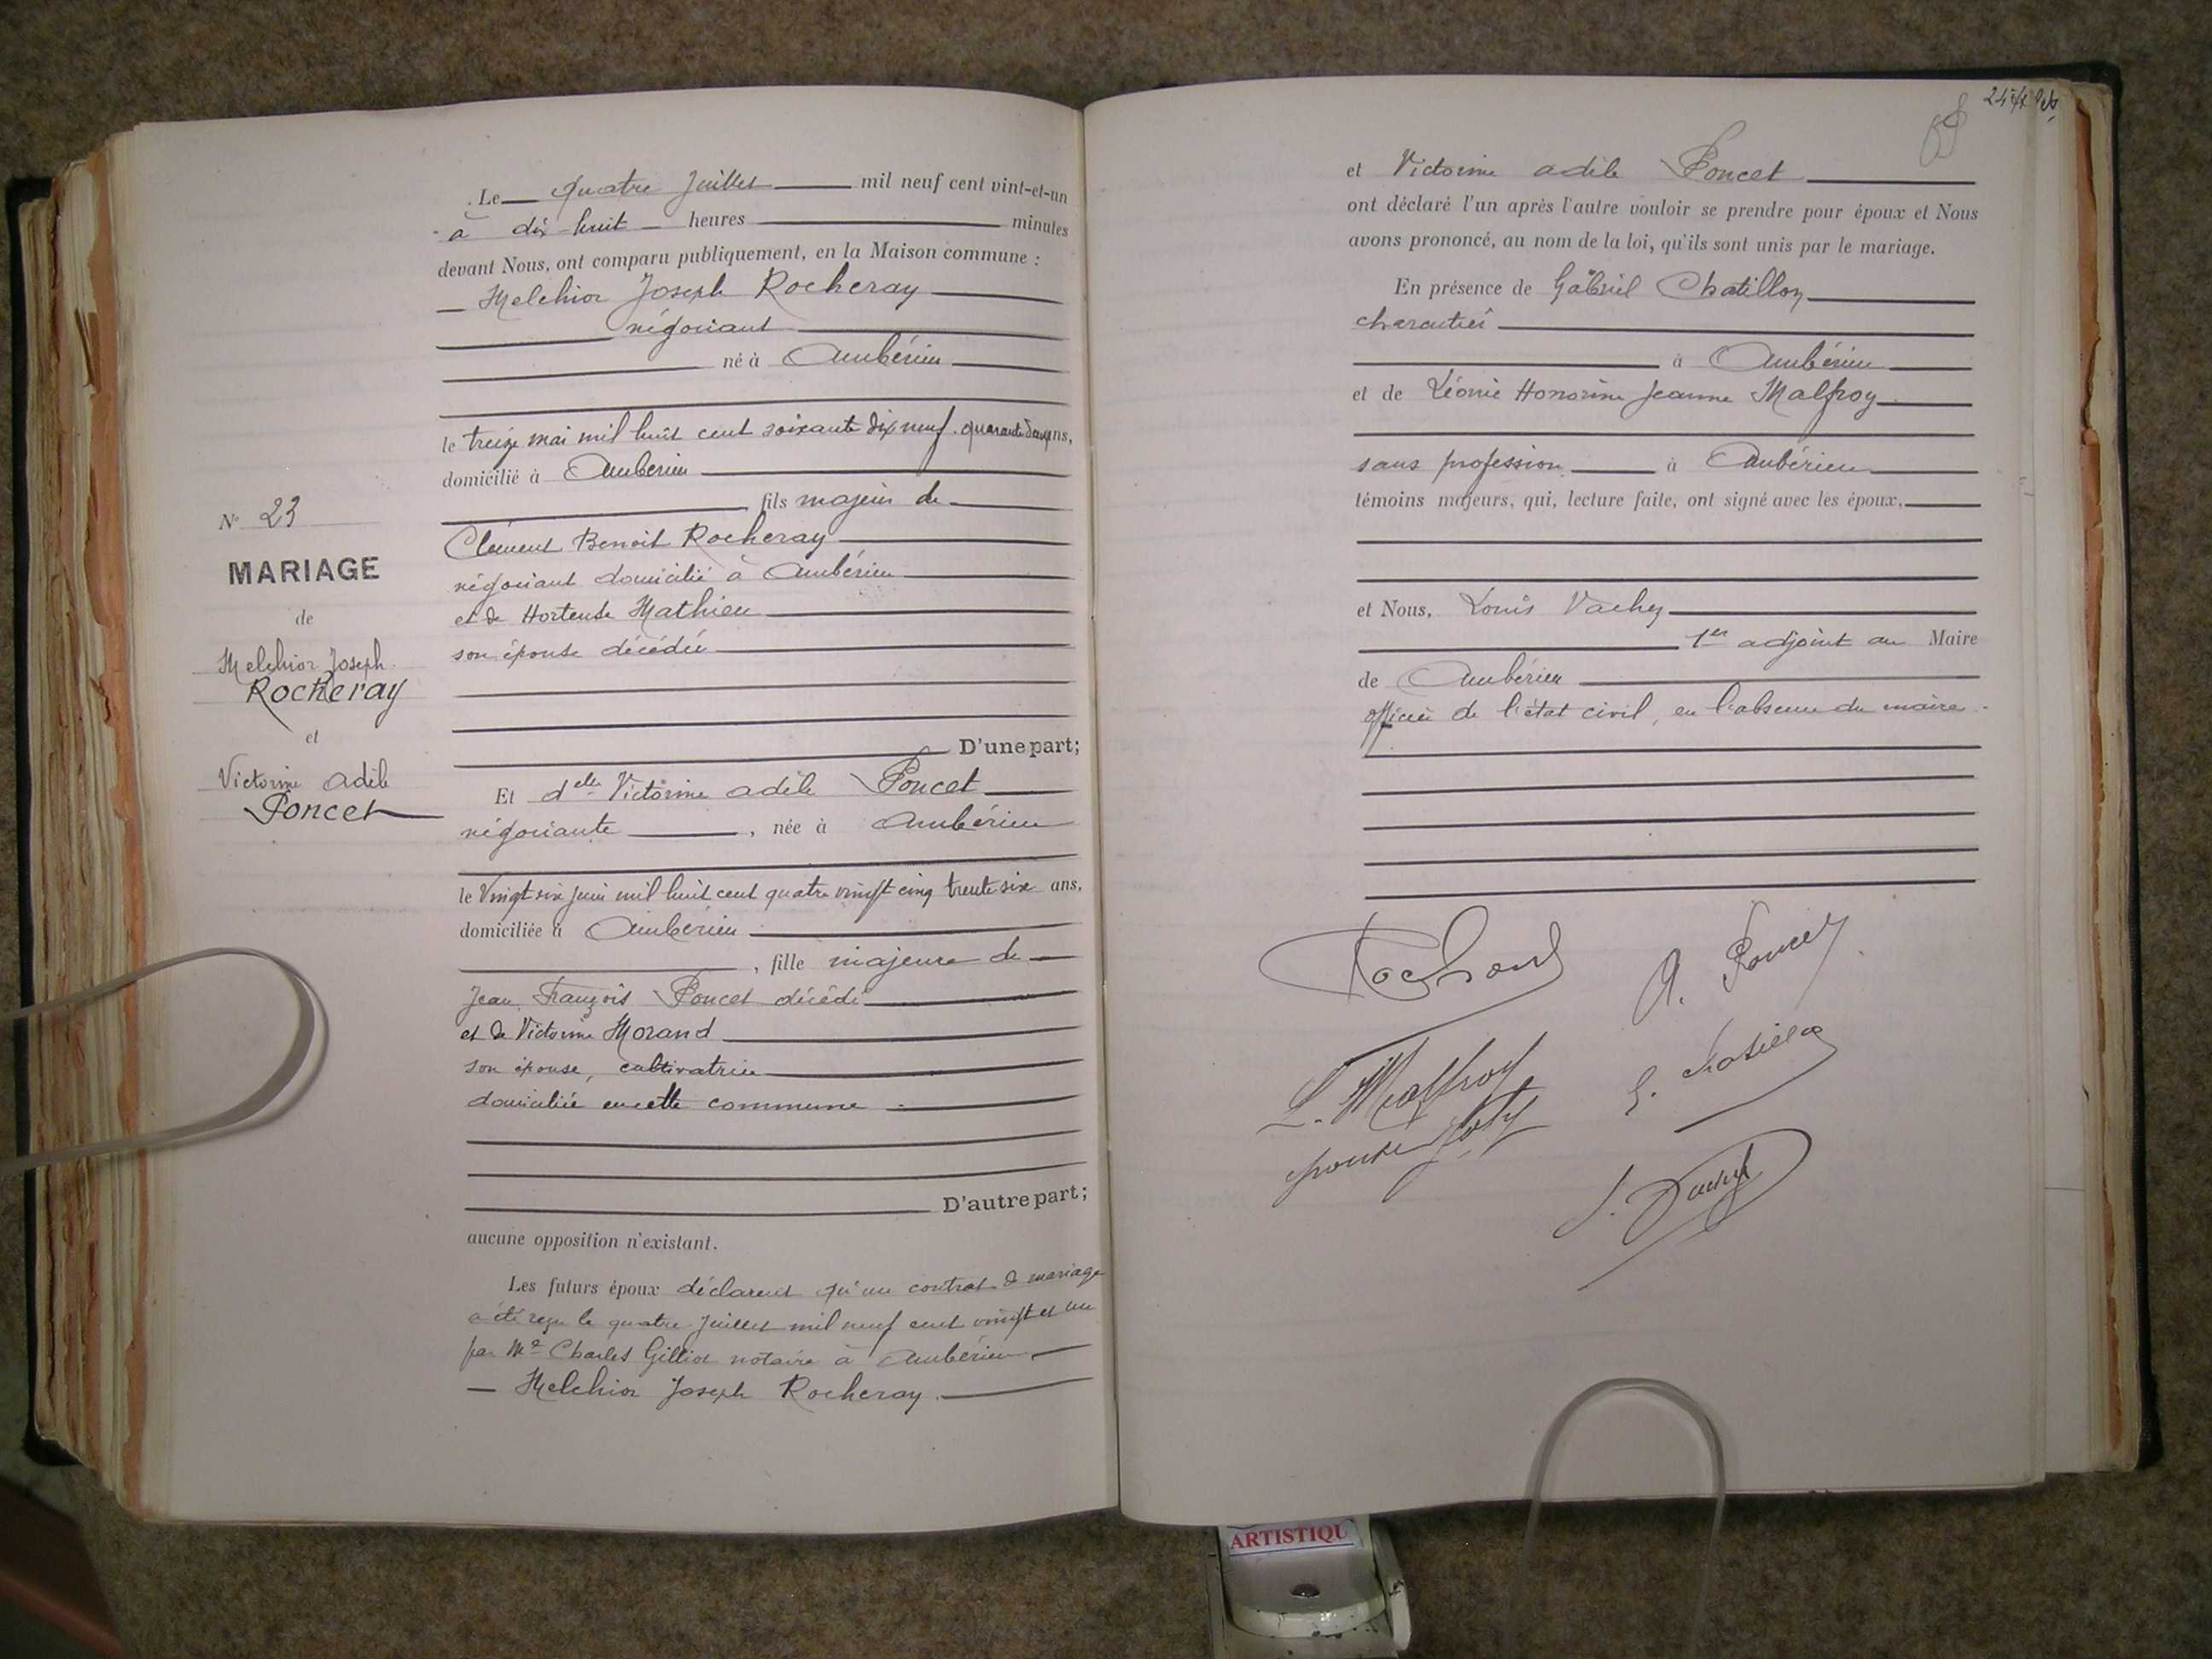 N° 23
MARIAGE
de
Melchior Joseph
Rocheray
et
Victorine Adèle
Poncet
Le quatre Juillet mil neuf cent vint-et-un
à dix-huit heures minutes
devant Nous, ont comparu publiquement, en la Maison commune :
Melchior Joseph Rocheray
négociant
né à Ambérieu
le treize mai mil huit cent soixante dix neuf. quarante deux ans,
domicilié à Ambérieu
fils majeur de
Clément Benoit Rocheray
négociant domicilié à Ambérieu
et de Hortense Mathieu
son épouse décédée
D'une part;
Et delle Victorine Adèle Poncet
négociante, née à Ambérieu
le Vingt six juin mil huit cent quatre vingt cinq trente six ans,
domiciliée à Ambérieu
, fille majeure de
Jean François Poncet décédé
et de Victorine Morand
son épouse, cultivatrice
domiciliée en cette commune
D'autre part;
aucune opposition n'existant.
Les futurs époux déclarent qu'un contrat de mariage
a été reçu le quatre Juillet mil neuf cent vingt et un
par Me Charles Gilliot notaire à Ambérieu
Melchior Joseph Rocheray.
et Victorine adèle Poncet
ont déclaré l'un après l'autre vouloir se prendre pour époux et Nous
avons prononcé, au nom de la loi, qu'ils sont unis par le mariage.
En présence de Gabriel Chatillon
charcutier
à Ambérieu
et de Léonie Honorine Jeanne Malfroy
sans profession à Ambérieu
témoins majeurs, qui, lecture faite, ont signé avec les époux,
et Nous, Louis Vachey
1er adjoint au Maire
de Ambérieu
officier de l'état civil, en l'absence du maire.
A. Poncet
L. Malfroy
ARTISTIQU